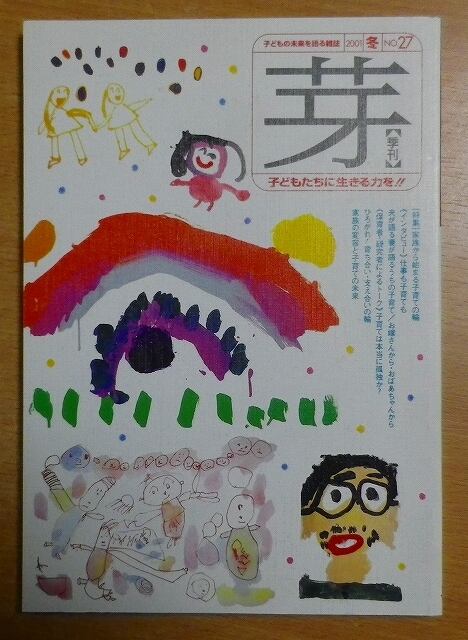 子どもの未来を語る雑誌 2001 冬 NO.27
芽
【季刊】
子どもたちに生きる力を!!
[特集]家族から始まる子育ての輪
《インタビュー》仕事も子育ても
夫が語る妻が語るうちの子育て/お嫁さんから・おばあちゃんから
《保育者・研究者によるトーク》子育ては本当に孤独か?
ひろがれ!育ち合い・支え合いの輪
家族の変容と子育ての未来